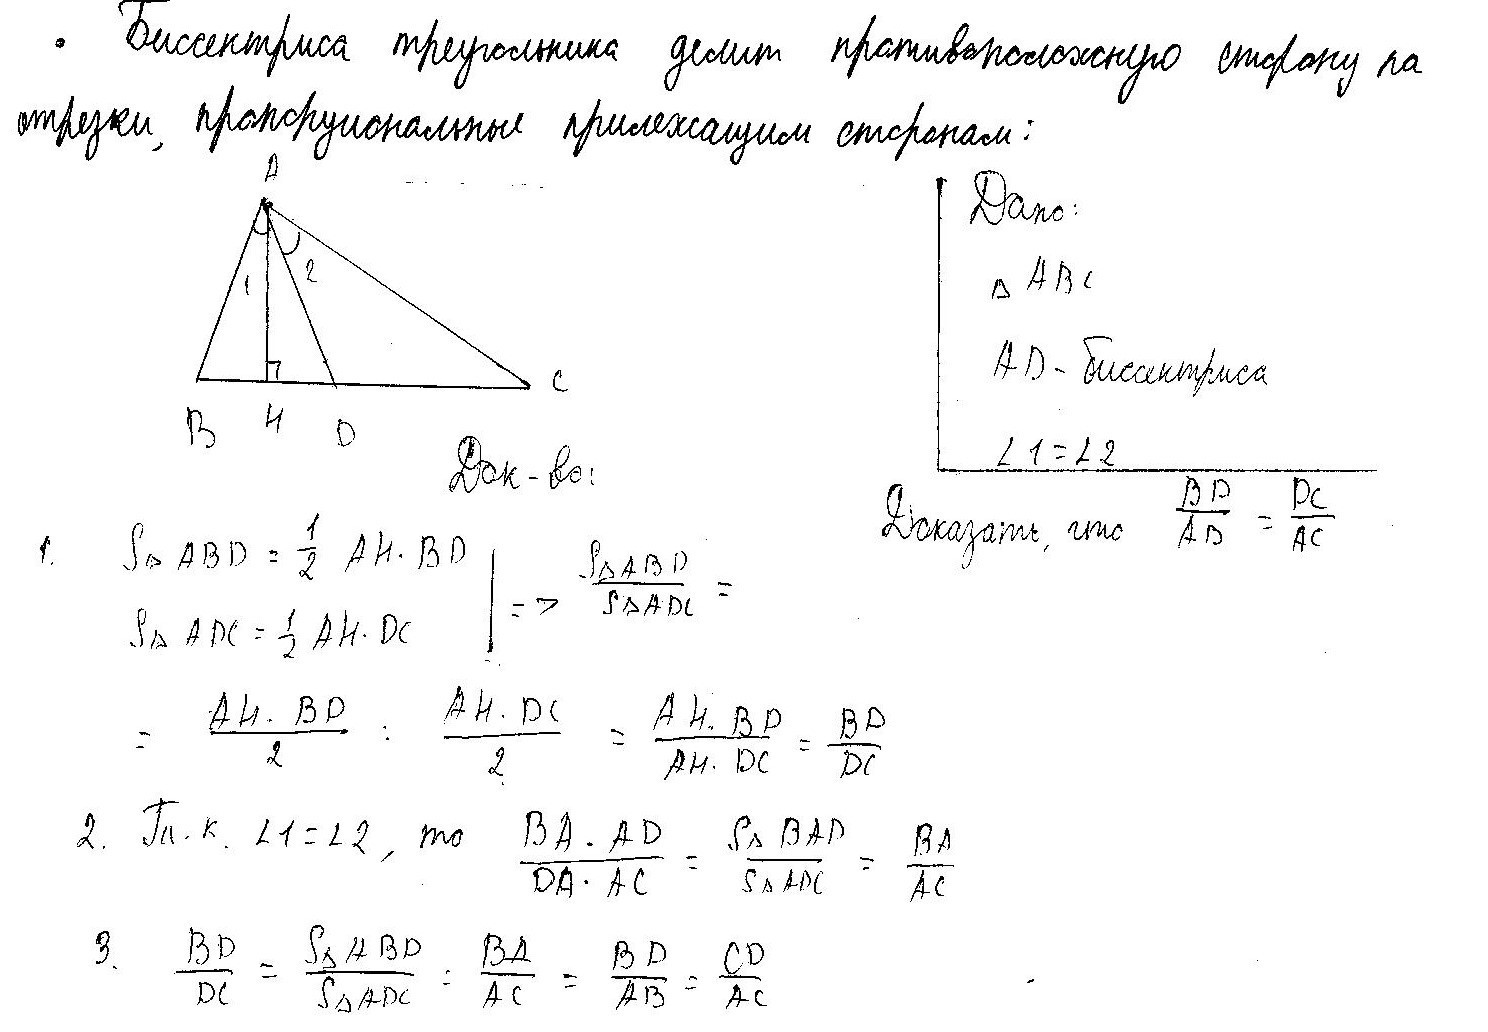 • Биссектриса треугольника делит противоположную сторону на
отрезки, пропорциональные прилежащим сторонам:
A
1 2
B H D C
Дано:
△ ABC
AD - биссектриса
∠1 = ∠2
Доказать, что BD/AB = DC/AC
Док-во:
1. S△ ABD = 1/2 AH · BD
S△ ADC = 1/2 AH · DC | => S△ABD/S△ADC =
= AH · BD/2 : AH · DC/2 = AH · BD/AH · DC = BD/DC
2. Т.к. ∠1 = ∠2, то BA · AD/DA · AC = S△ BAD/S△ADC = BA/AC
3. BD/DC = S△ABD/S△ADC = BA/AC = BD/AB = CD/AC